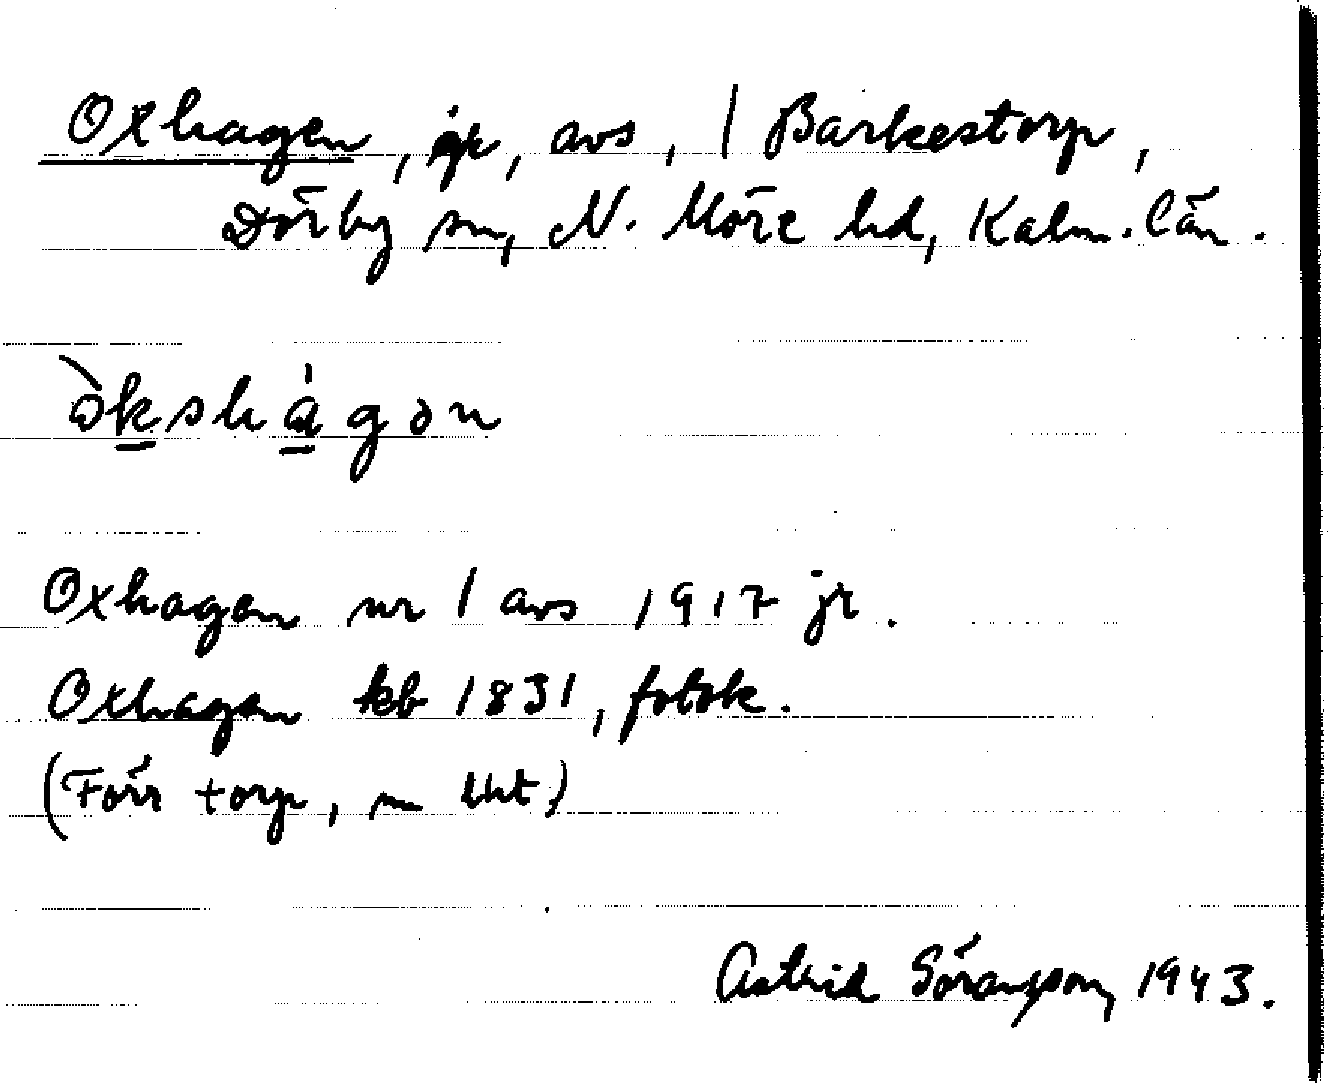 Oxhagen, jr, avs, / Barkestorp,
Dörby sn, N. Möre hd, Kalm. län.
ò̱kshàgən
Oxhagen nr 1 avs 1917 jr.
Oxhagen kb 1831, fotok.
(Förr torp, m
Astrid Söransson, 1943.